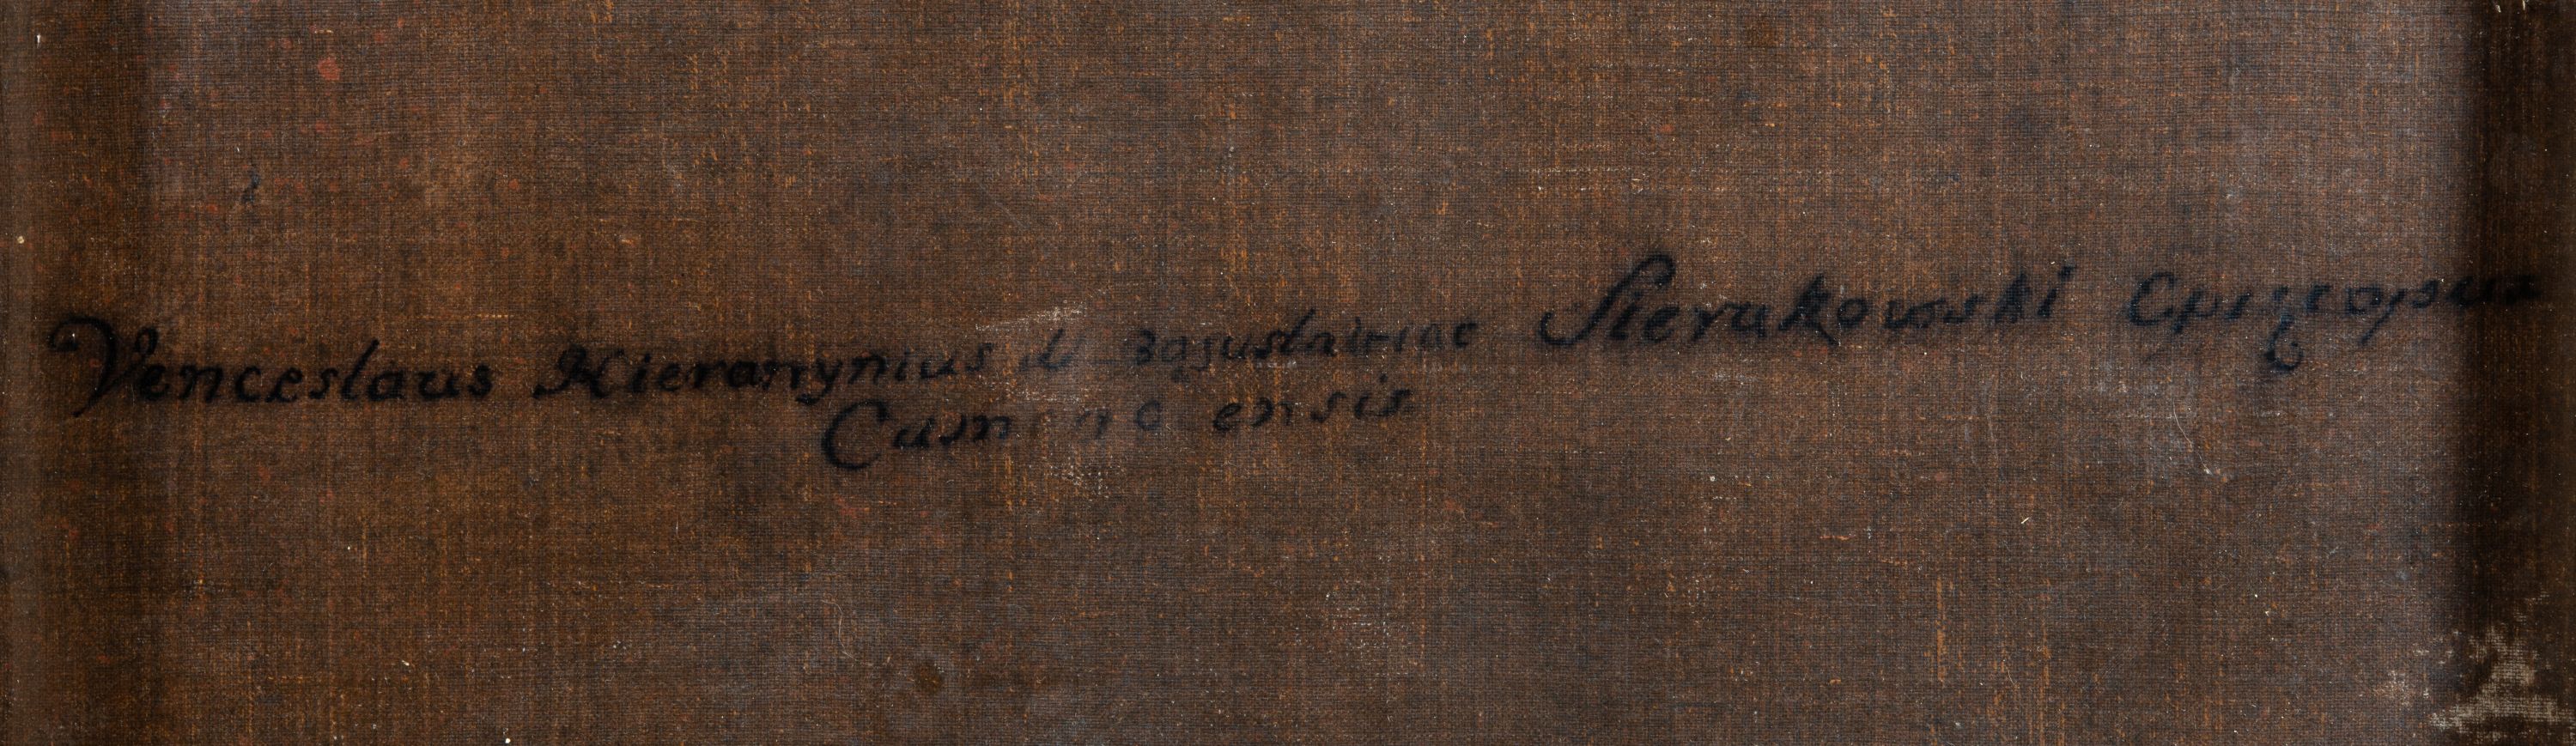 Venceslaus Hieranynius de Bogustairiae Sierakowski Episcopus
Camenoensis